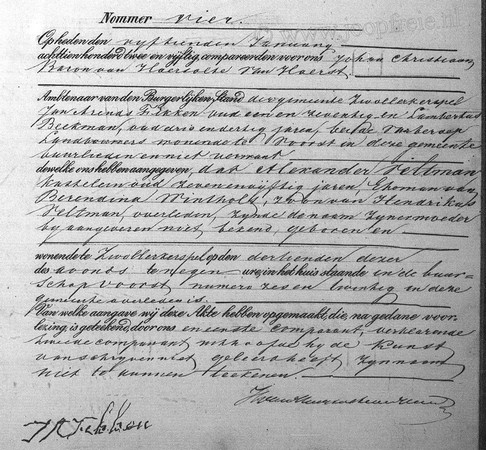 Nommer vier.
Op heden den vyftienden January
achttien honderd twee en vijftig, compareerden voor ons Johan Christiaan
Baron van Haersolte van Haerst.
Ambtenaar van den Burgerlijken Stand der gemeente Zwollerkerspel
Jan Arends Fikken oud een en zeventig en Lambertus
Beekman, oud drie en dertig jaren, beide van beroep
Landbouwers wonende te Voorst in deze gemeente
buurlieden en niet vermaat
dewelke ons hebben aangegeven, dat Alexander Veltman
kastelein oud zeven en vyftig jaren, Ehoman van
Berendina Wintholt, zoon van Hendrikus
Veltman, overleden, zynde de naam zyner moeder
by aangeveren niet bekend, geboren en
wonende te Zwollerkerspel op den dertienden dezer
des avonds te negen ure, in het huis staande in de buur-
schap Voorst numero zes en twintig in deze
gemeente overleden is.
Van welke aangave wij deze Akte hebben opgemaakt, die, na gedane voor-
lezing, is geteekend door ons en eerste comparant, verklarende
tweede comparant de kunst
van schryven niet geleerd heeft zyn naam
niet te kunnen teekenen.
JA Fikken